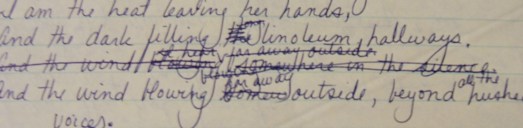 I am the heat leaving her hands,
And the dark filling the linoleum hallways.
I hear far away outside
And the wind blowing somewhere in the silence
away all the
And the wind blowing outside, beyond hushed
voices.